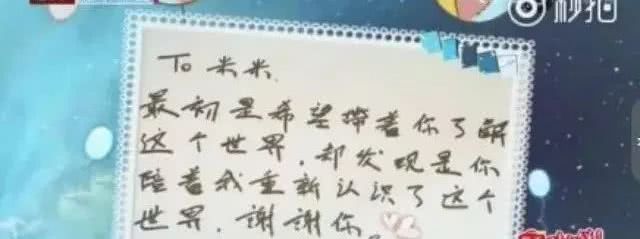 秒拍
To 米米.
最初是希望带着你了解
这个世界.却发现是你
陪着我重新认识了这个
世界.謝謝你.